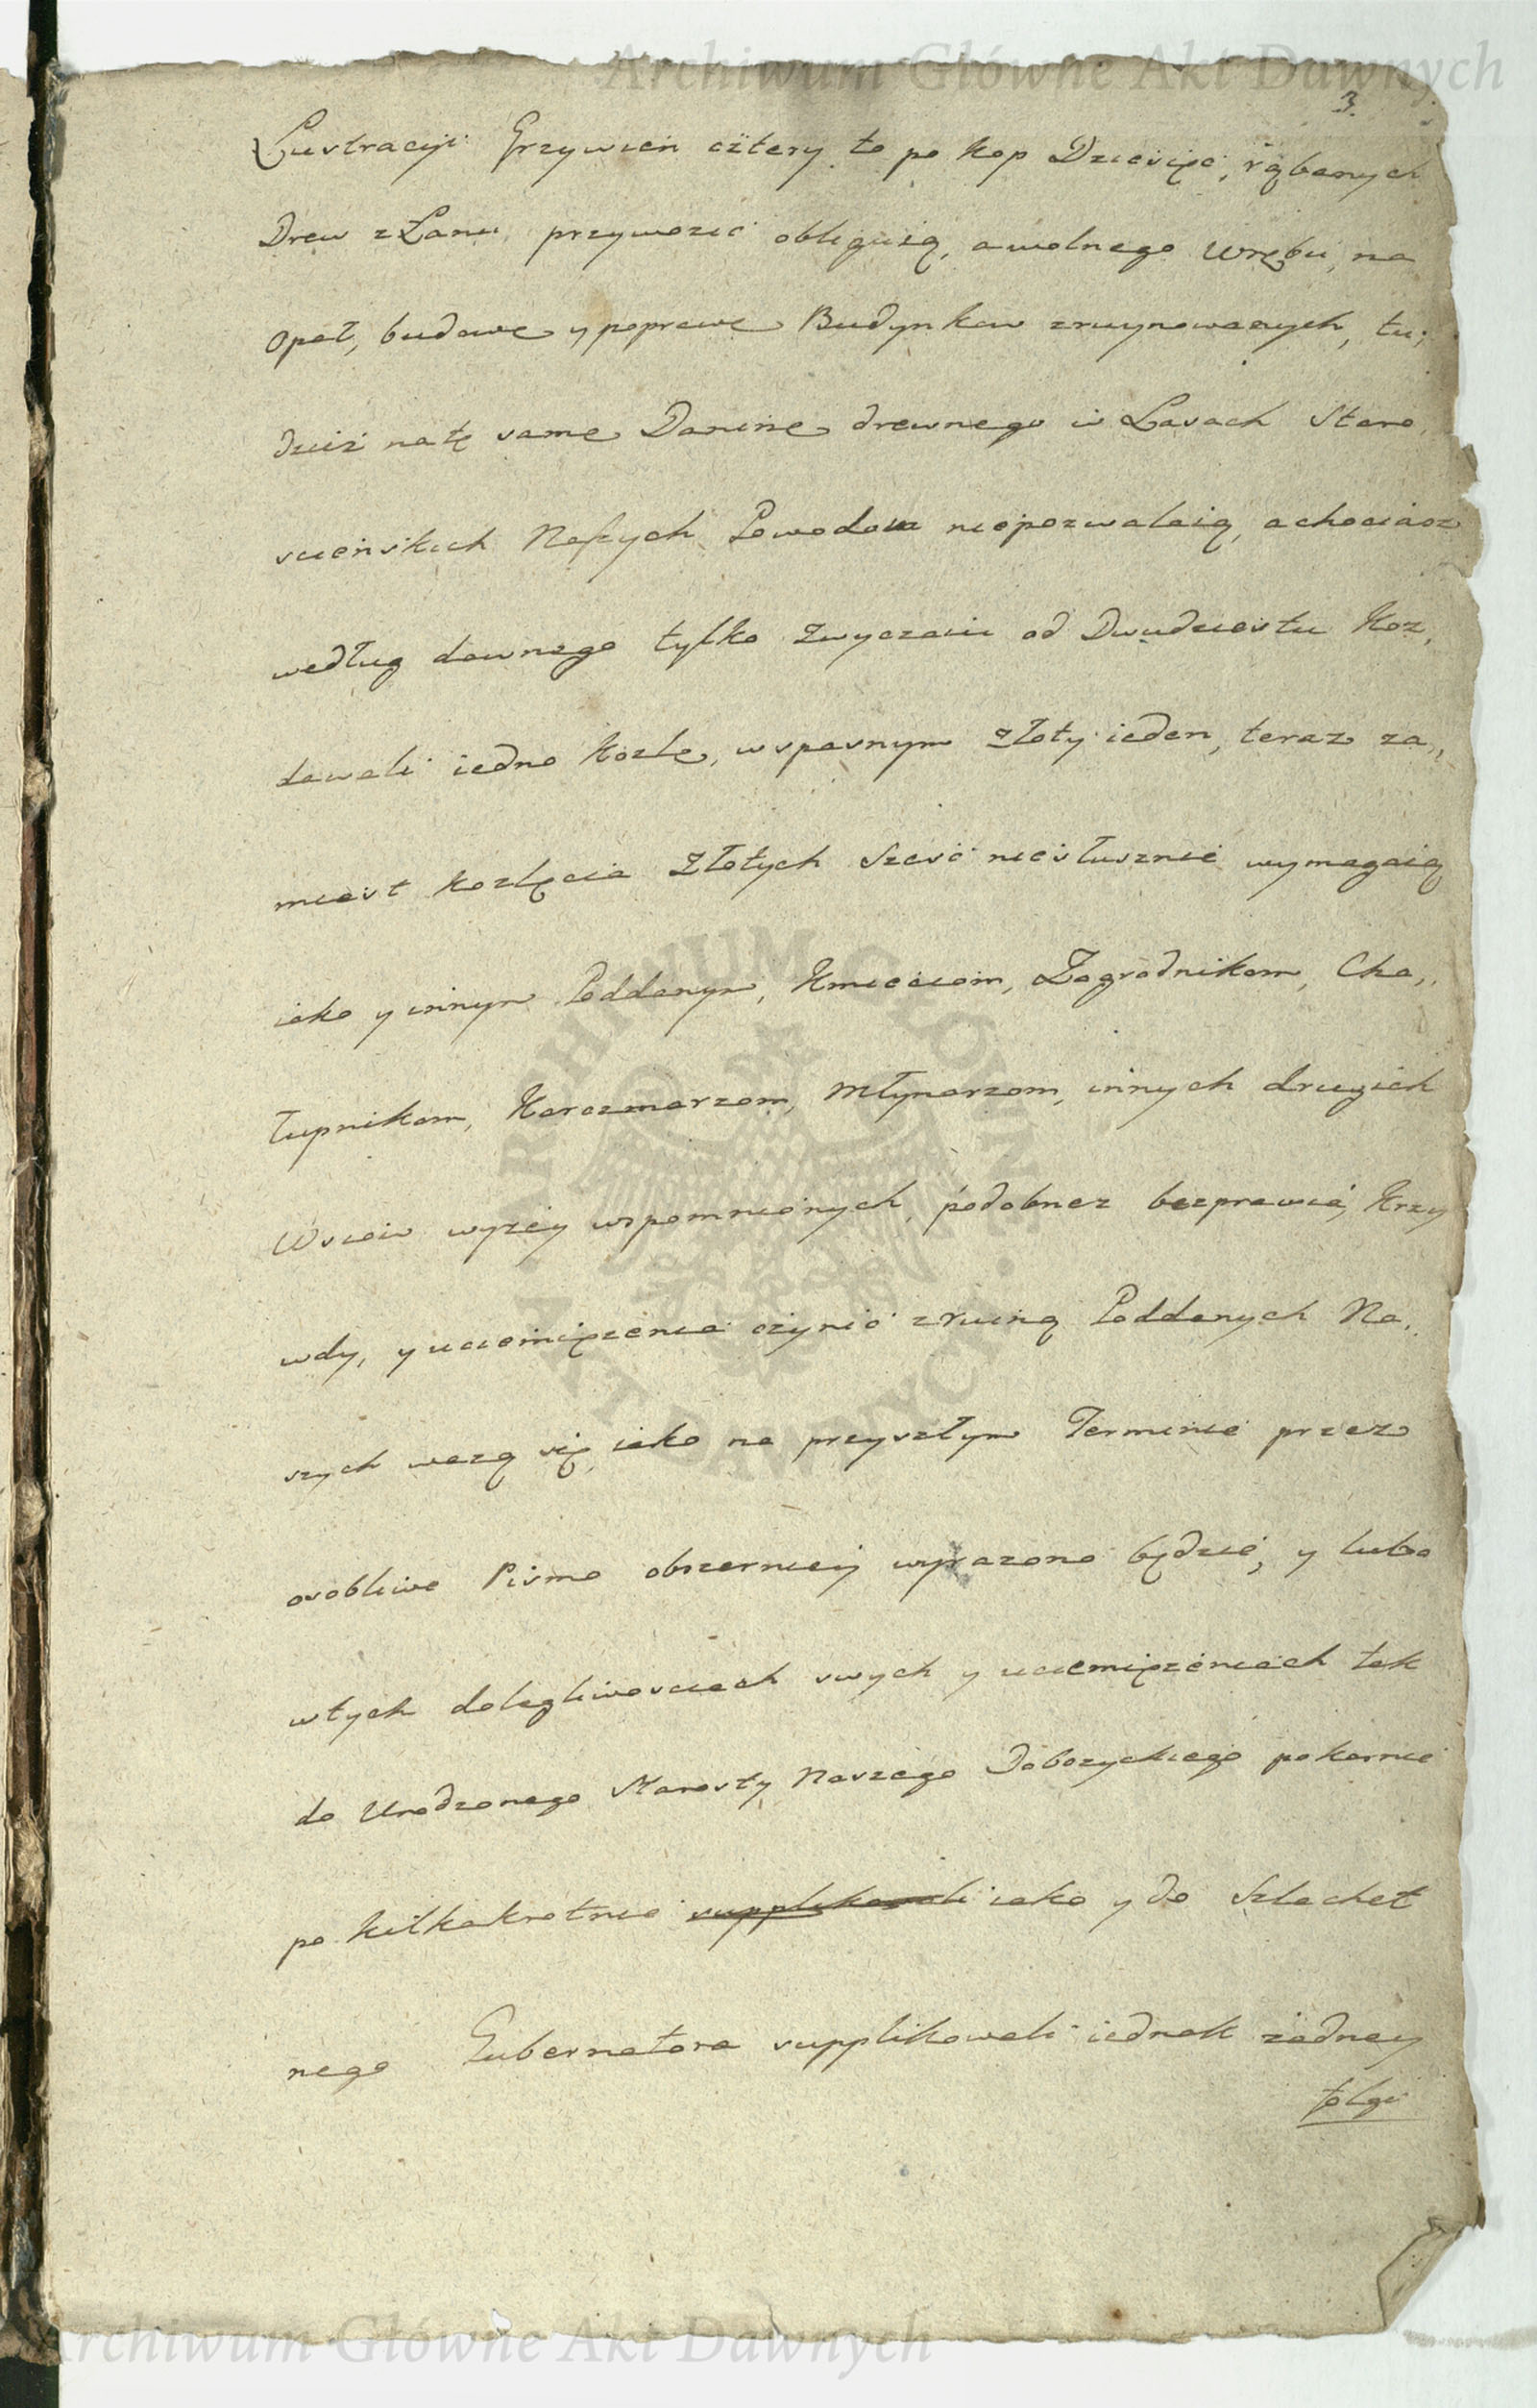 Archiwum Główne Akt Dawnych
3.
Lustracyi Grzywien cztery to po kop Dziesięć, rąbanych
Drew z Łanu przywozić obliguią, a wolnego Wrębu na
Opał, budowe y poprawe Budynkow zruynowanych, tu,
dzież na tę same Danine drewnego w Lasach Staro,
scieńskich Naszych Powodom niepozwalaią, a chociasz
według dawnego tylko Zwyczaiu od Dwudziestu Koz,
dawali iedno Kozle, w spasnym Złoty ieden, teraz za,,
miast kozlęcia Złotych Szesć niesłusznie wymagaią
iako y innym Poddanym, Kmieciom, Zagrodnikom, Cha,,
łupnikom, Karczmarzom, Młynarzom, innych drugich
Wsciow wyżey wspomnionych, podobnez bezprawia, Krzy
wdy, y uciemiężenia czynić z ruiną Poddanych Na,,
szych ważą się, iako na przyszłym Terminie przez
osobliwe Pismo obszerniey wyrazono będzie, y lubo
w tych dolegliwosciach swych y uciemiężeniach tak
do Urodzonego Starosty Naszego Dobczyckiego pokornie
po kilkakrotnie supplikowali iako y do Szlachet
nego Gubernatora supplikowali iednak żadney
folgi
ARCHIWUM GŁÓWNE · AKT DAWNYCH ·
Archiwum Główne Akt Dawnych